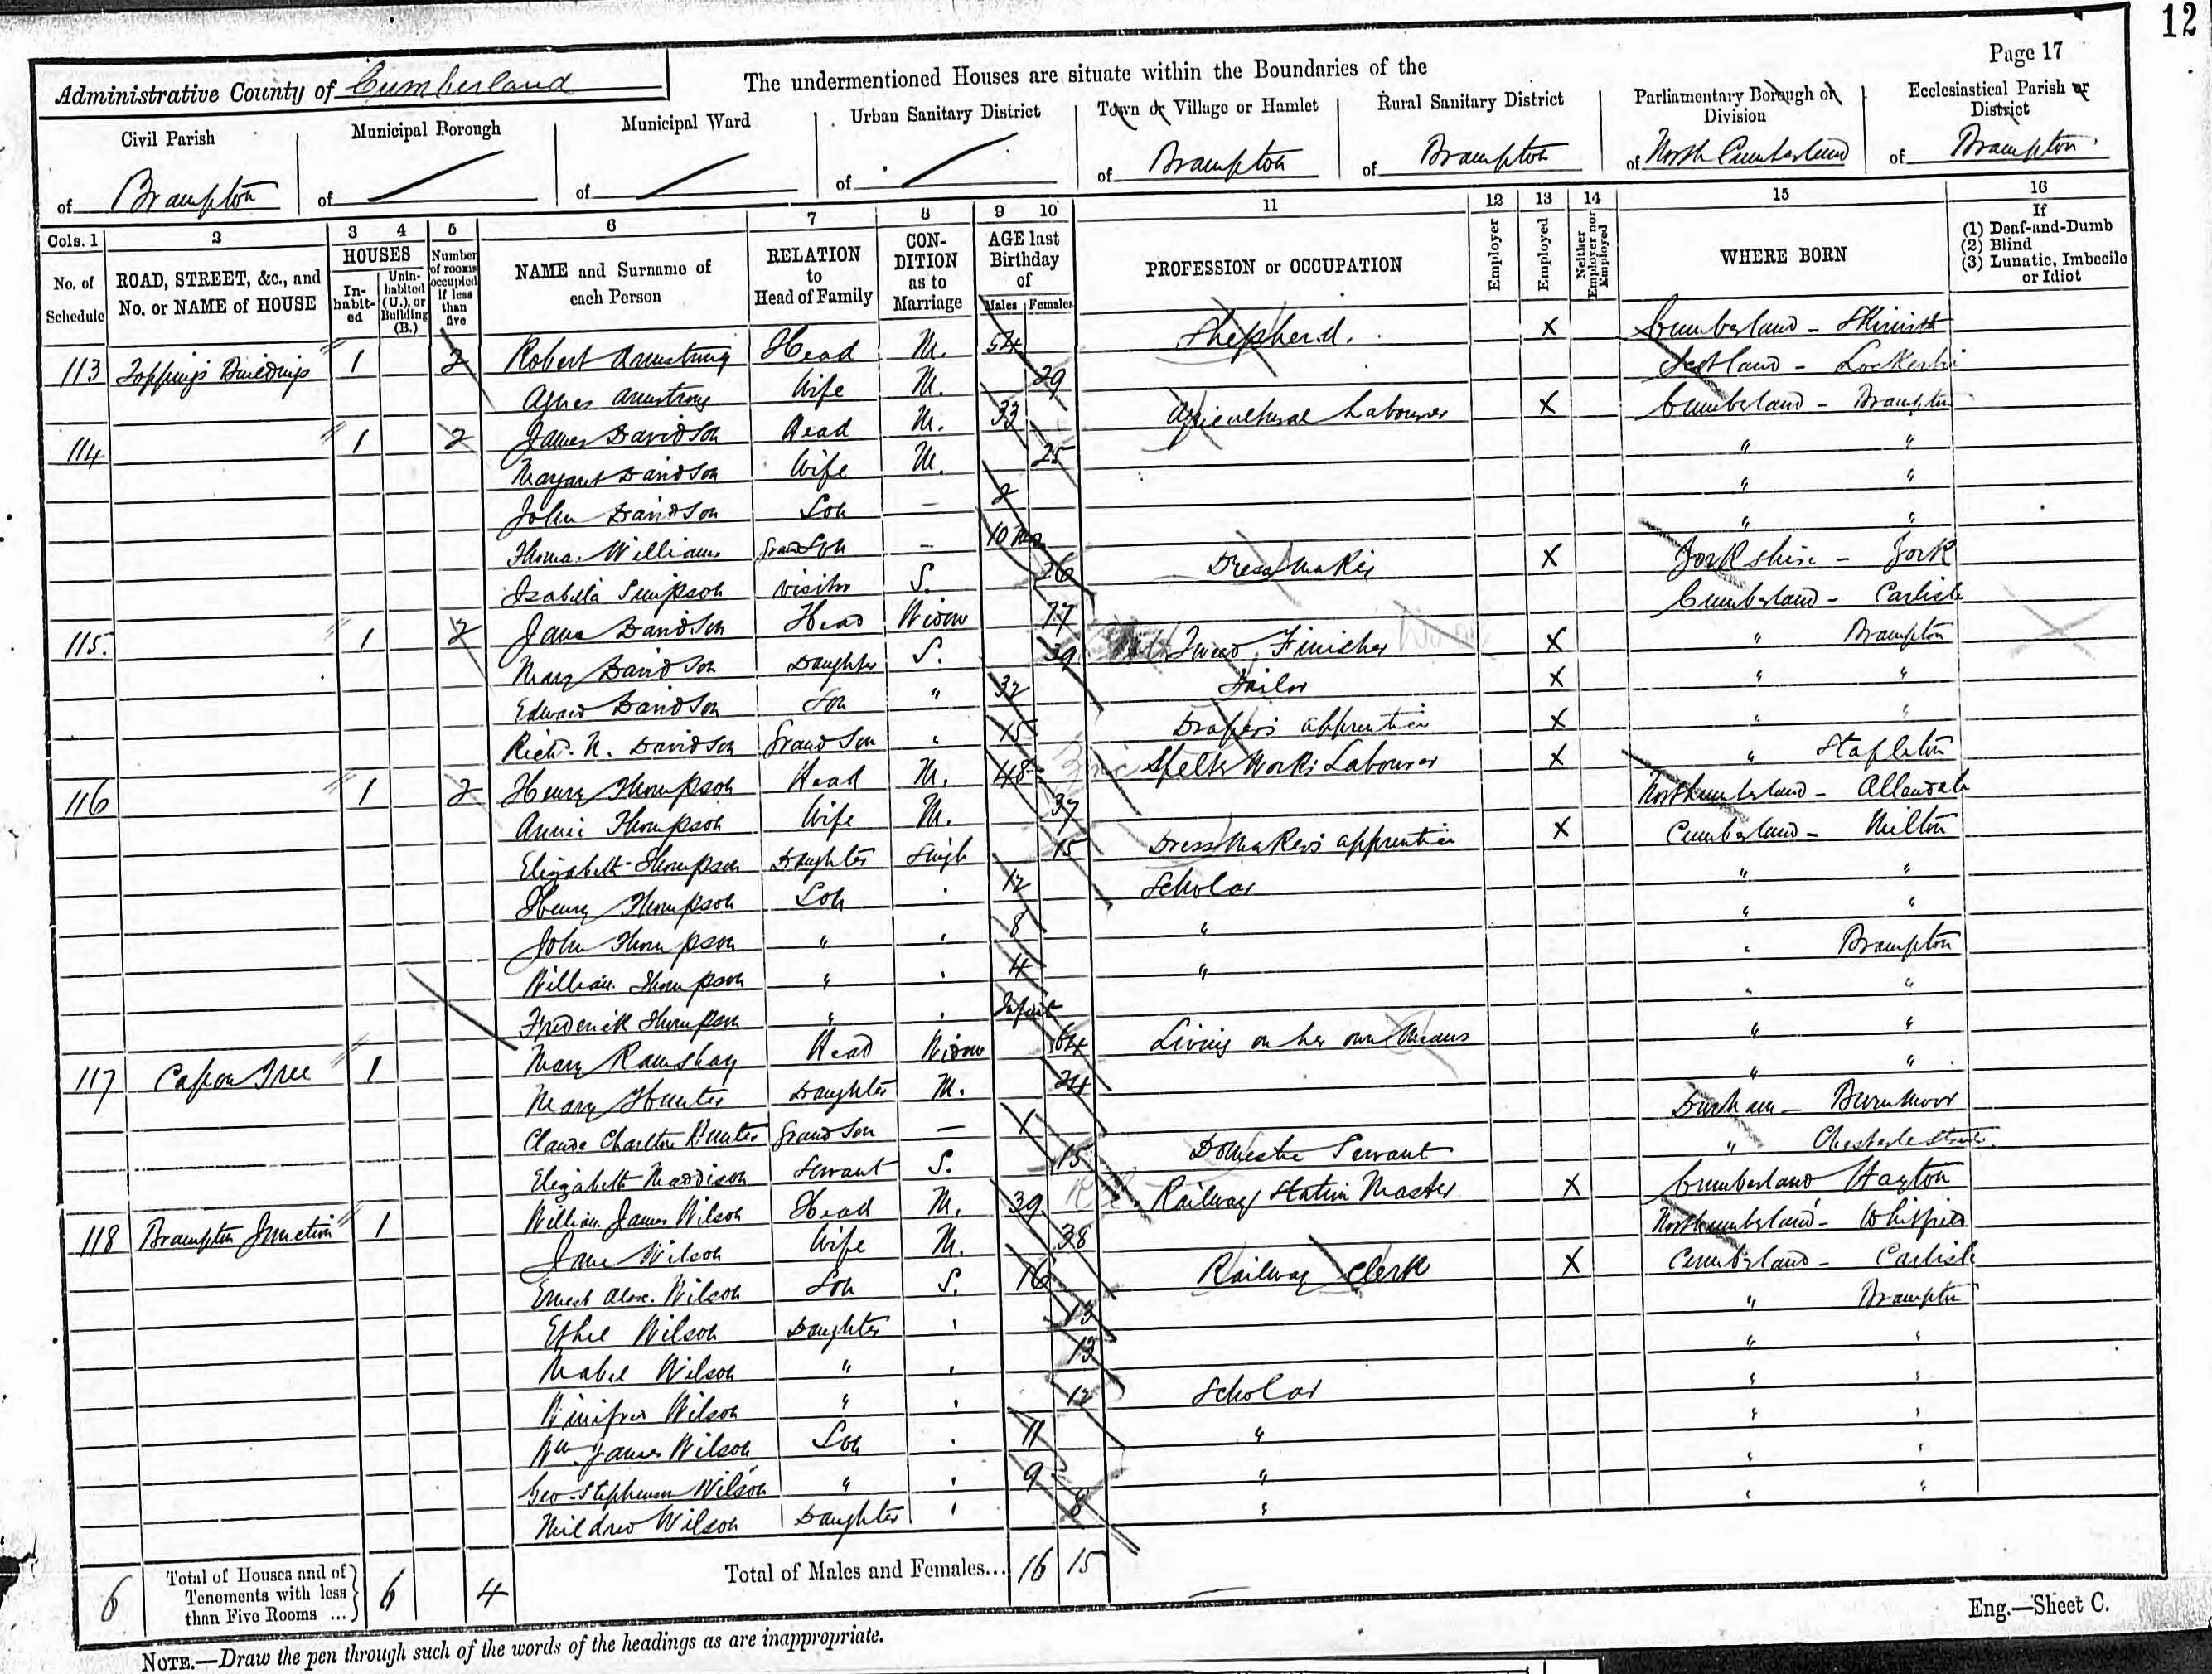 12
Page 17
Administrative County of Cumberland
The undermentioned Houses are situate within the Boundaries of the
Civil Parish of Brampton
Municipal Borough of
Municipal Ward of
Urban Sanitary District of
Town or Village or Hamlet of Brampton
Rural Sanitary District of Brampton
Parliamentary Borough or Division of North Cumberland
Ecclesiastical Parish or District of Brampton
Cols. 1 2 3 4 5 6 7 8 9 10 11 12 13 14 15 16
No. of Schedule
ROAD, STREET, &c., and No. or NAME of HOUSE
HOUSES
In-habit-ed
Unin-habited (U.), or Building (B.)
Number of rooms occupied if less than five
NAME and Surname of each Person
RELATION to Head of Family
CON-DITION as to Marriage
AGE last Birthday of
Males Females
PROFESSION or OCCUPATION
Employer
Employed
Neither Employer nor Employed
WHERE BORN
If (1) Deaf-and-Dumb (2) Blind (3) Lunatic, Imbecile or Idiot
113 Toppings Buildings 1 2 Robert Armstrong Head M. 54 Shepherd. X Cumberland -
Agnes Armstrong Wife M. 29 Scotland - Lockerbie
114 1 2 James Davidson Head M. 33 Agricultural Labourer X Cumberland - Brampton
Margaret Davidson Wife M. 25 " "
John Davidson Son - 2 " "
Thomas Williams Grand Son - 10 mo " "
Isabella Simpson Visitor S. 26 Dress Maker X Yorkshire - York
115. 1 2 Jane Davidson Head Widow 77 Cumberland - Carlisle
Mary Davidson Daughter S. 39 Tweed Finisher X " Brampton
Edward Davidson Son " 32 Tailor X " "
Richd. N. Davidson Grand Son " 15 Drapers apprentice X " "
116 1 2 Henry Thompson Head M. 48 Spelter Works Labourer X " Stapleton
Annie Thompson Wife M. 37 Northumberland - Allendale
Elizabeth Thompson Daughter Single 15 Dress Makers apprentice X Cumberland - Milton
Henry Thompson Son " 12 Scholar " "
John Thompson " " 8 " " "
William Thompson " " 4 " " Brampton
Frederick Thompson " " Infant " "
117 Capon Tree 1 Mary Ramshay Head Widow 64 Living on her own Means " "
Mary Hunter Daughter M. 24 " "
Claude Charlton Hunter Grand Son - 1 Durham - Burnmoor
Elizabeth Maddison Servant S. 15 Domestic Servant " Chesterlestreet
118 Brampton Junction 1 William James Wilson Head M. 39 Railway Station Master X Cumberland Hayton
Jane Wilson Wife M. 38 Northumberland - Whitfield
Ernest Alex. Wilson Son S. 16 Railway Clerk X Cumberland - Carlisle
Ethel Wilson Daughter " 13 " Brampton
Mabel Wilson " " 13 " "
Winifred Wilson " " 12 Scholar " "
Wm James Wilson Son " 11 " " "
Geo Stephenson Wilson " " 9 " " "
Mildred Wilson Daughter " 8 " " "
6 Total of Houses and of Tenements with less than Five Rooms ... 6 4 Total of Males and Females... 16 15
Eng.—Sheet C.
NOTE.—Draw the pen through such of the words of the headings as are inappropriate.